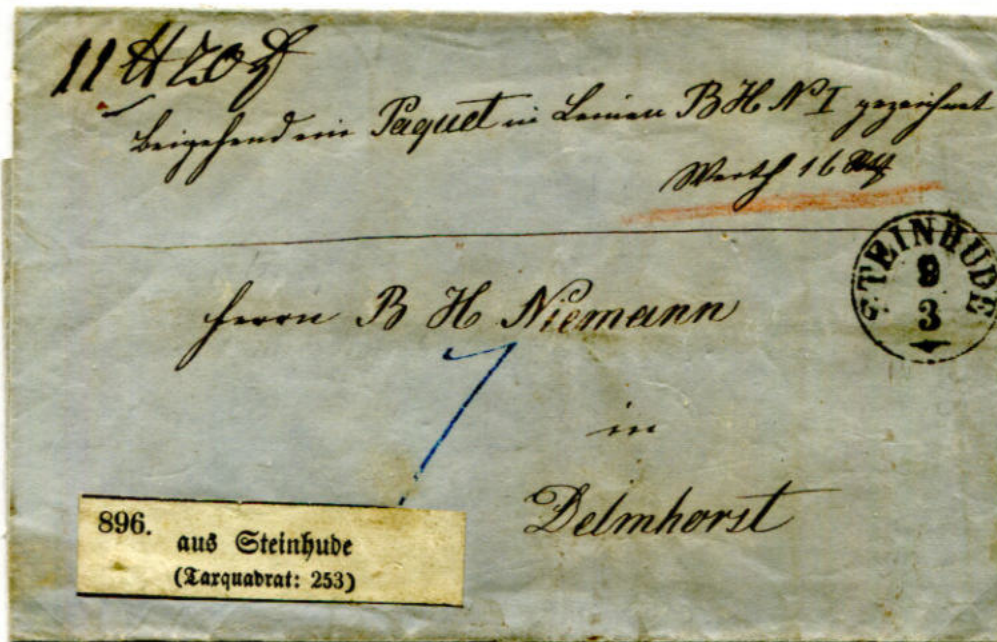 11 ℔ 20
Beigehend ein Paquet in Leinen B H N I gezeichnet
Werth 16
STEINHUDE
9
3
Herrn B H Niemann
7
in
Delmhorst
896.
aus Steinhude
(Taxquadrat: 253)